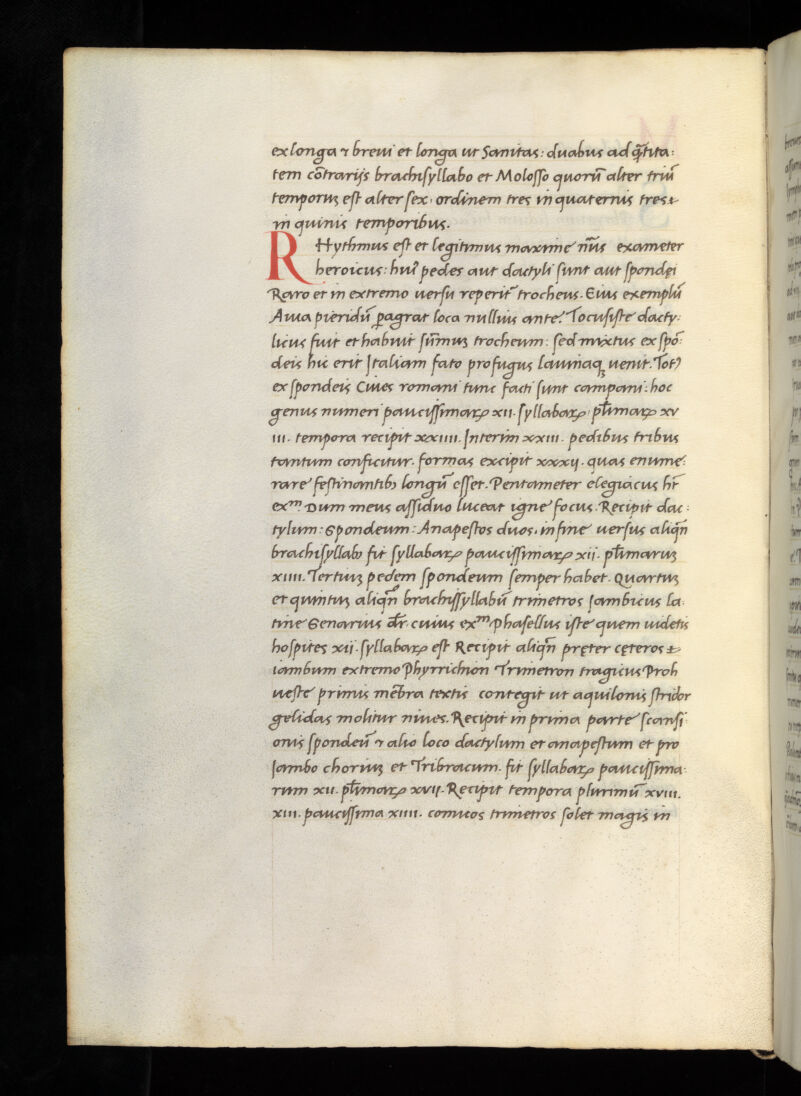 ex longa ⁊ breui et longa ut Sanitas: duabus ad q̃tita:
tem cõtrarijs brachisyllabo et Molosso quorũ alter triũ
temporuꝫ est alter sex, ordinem tres in quaternis tres &
in quinis temporibus.
RHythmus est et legitimus maxime nũs exameter
heroicus: huiꝰ pedes aut dactyli sunt aut spondei
Raro et in extremo uersu reperit᷑ trocheus. Eius exemplũ
Auia pieridũ ꝑagrat loca nullius anteꝰ Tocusiste dacty:
licus fuit et habuit sũmuꝫ trocheum: sed mixtus ex spõ:
deis hic erit Italiam fato profugus lauinaqꝫ uenit. Totꝰ
ex spondeis Ciues romani tunc facti sunt campani: hoc
genus numeri paucissimaꝝ xii. syllabaꝝ, pl̃imaꝝ xv
iii. tempora recipit xxiiii. Interim xxiii. pedibus tribus
tantum conficitur. formas excipit xxxij. quas enume:
rare festinantibꝰ longũ esset. Pentameter elegiacus hr̃
exᵐ. Dum meus assiduo luceat igne focus. Recipit dac:
tylum: Spondeum: Anapestos duos. in fine uersus aliqñ
brachisyllabo fit syllabaꝝ paucissimaꝝ xii. pl̃imaruꝫ
xiiii. Tertiuꝫ pedem spondeum semper habet. Quartuꝫ
et quintuꝫ aliqñ brachissyllabũ trimetros Iambicus la:
tine Senarius dr̃. cuius exᵐ Phasellus iste quem uidetis
hospites xii. syllabaꝝ est Recipit aliqñ pręter cęteros &
iambum extremo Phyrrichion Trimetron tragicus Proh
ueste primis mẽbra textis contegit ut aquilonis stridor
gelidas molitur niues. Recipit in prima parte scansi
onis spondeũ ⁊ alio loco dactylum et anapestum et pro
Iambo choriuꝫ et Tribracum. fit syllabaꝝ paucissima
rum xii. pl̃imaꝝ xvij. Recipit tempora plurimũ xviii.
xiii. paucissima xiiii. comicos trimetros solet magis in